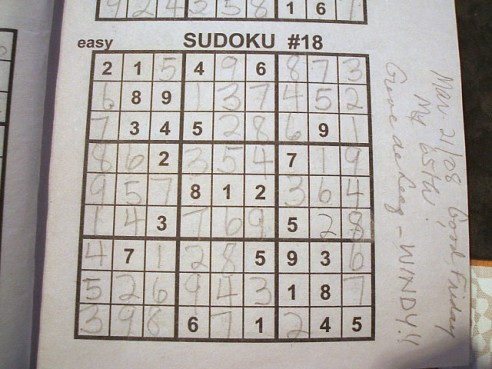 9 2 4 3 5 8 1 6 1
easy SUDOKU #18
2 1 5 4 9 6 8 7 3
6 8 9 1 3 7 4 5 2
7 3 4 5 2 8 6 9 1
8 6 2 3 5 4 7 1 9
9 5 7 8 1 2 3 6 4
1 4 3 7 6 9 5 2 8
4 7 1 2 8 5 9 3 6
5 2 6 9 4 3 1 8 7
3 9 8 6 7 1 2 4 5
Mar. 21/08 Good Friday
My 65th!
- WINDY!!